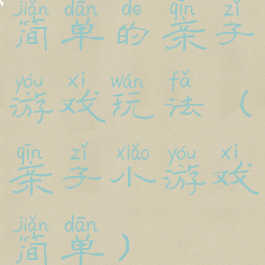 jiǎn dān de qīn zǐ
简单的亲子
yóu xì wán fǎ
游戏玩法（
qīn zǐ xiǎo yóu xì
亲子小游戏
jiǎn dān
简单）